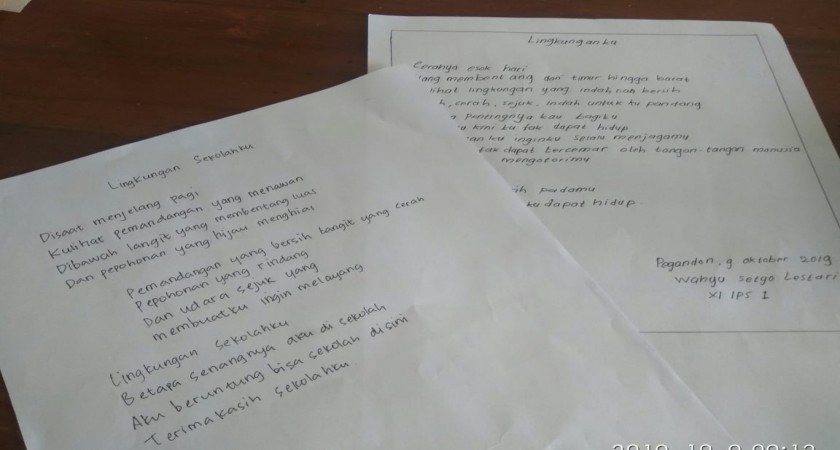 Lingkungan Sekolahku
Disaat menjelang pagi
Kulihat pemandangan yang menawan
Dibawah langit yang membentang luas
Dan pepohonan yang hijau menghias
Pemandangan yang bersih langit yang cerah
Pepohonan yang rindang
Dan udara sejuk yang
membuatku ingin melayang
Lingkungan sekolahku
Betapa senangnya aku di sekolah
Aku beruntung bisa sekolah disini
Terimakasih sekolahku
Lingkunganku
Cerahya esok hari
membentang dari timur hingga barat
lingkungan yang indah nan bersih
cerah, sejuk, indah untuk ku pandang
pentingnya kau bagiku
kini ku tak dapat hidup
inginku selalu menjagamu
tak dapat tercemar oleh tangan-tangan manusia
mengotorimu
padamu
ku dapat hidup.
Pagandon, 9 Oktober 2019
Wahyu Setyo Lestari
XI IPS 1